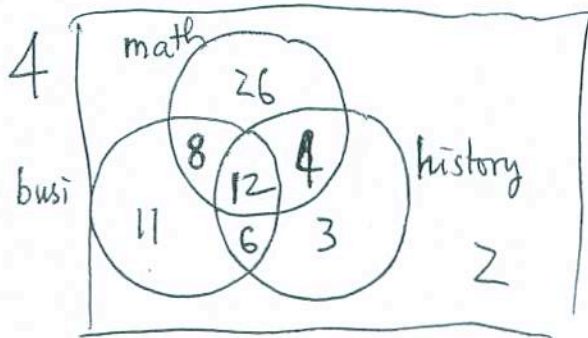 4
math
26
8
4
busi
12
history
11
6
3
2